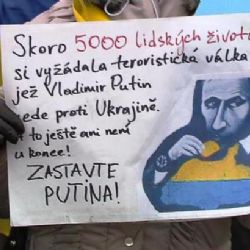 Skoro 5000 lidských životů
si vyžádala teroristická válka
jež Vladimir Putin
vede proti Ukrajině.
A to ještě ani není
u konce!
ZASTAVTE
PUTINA!